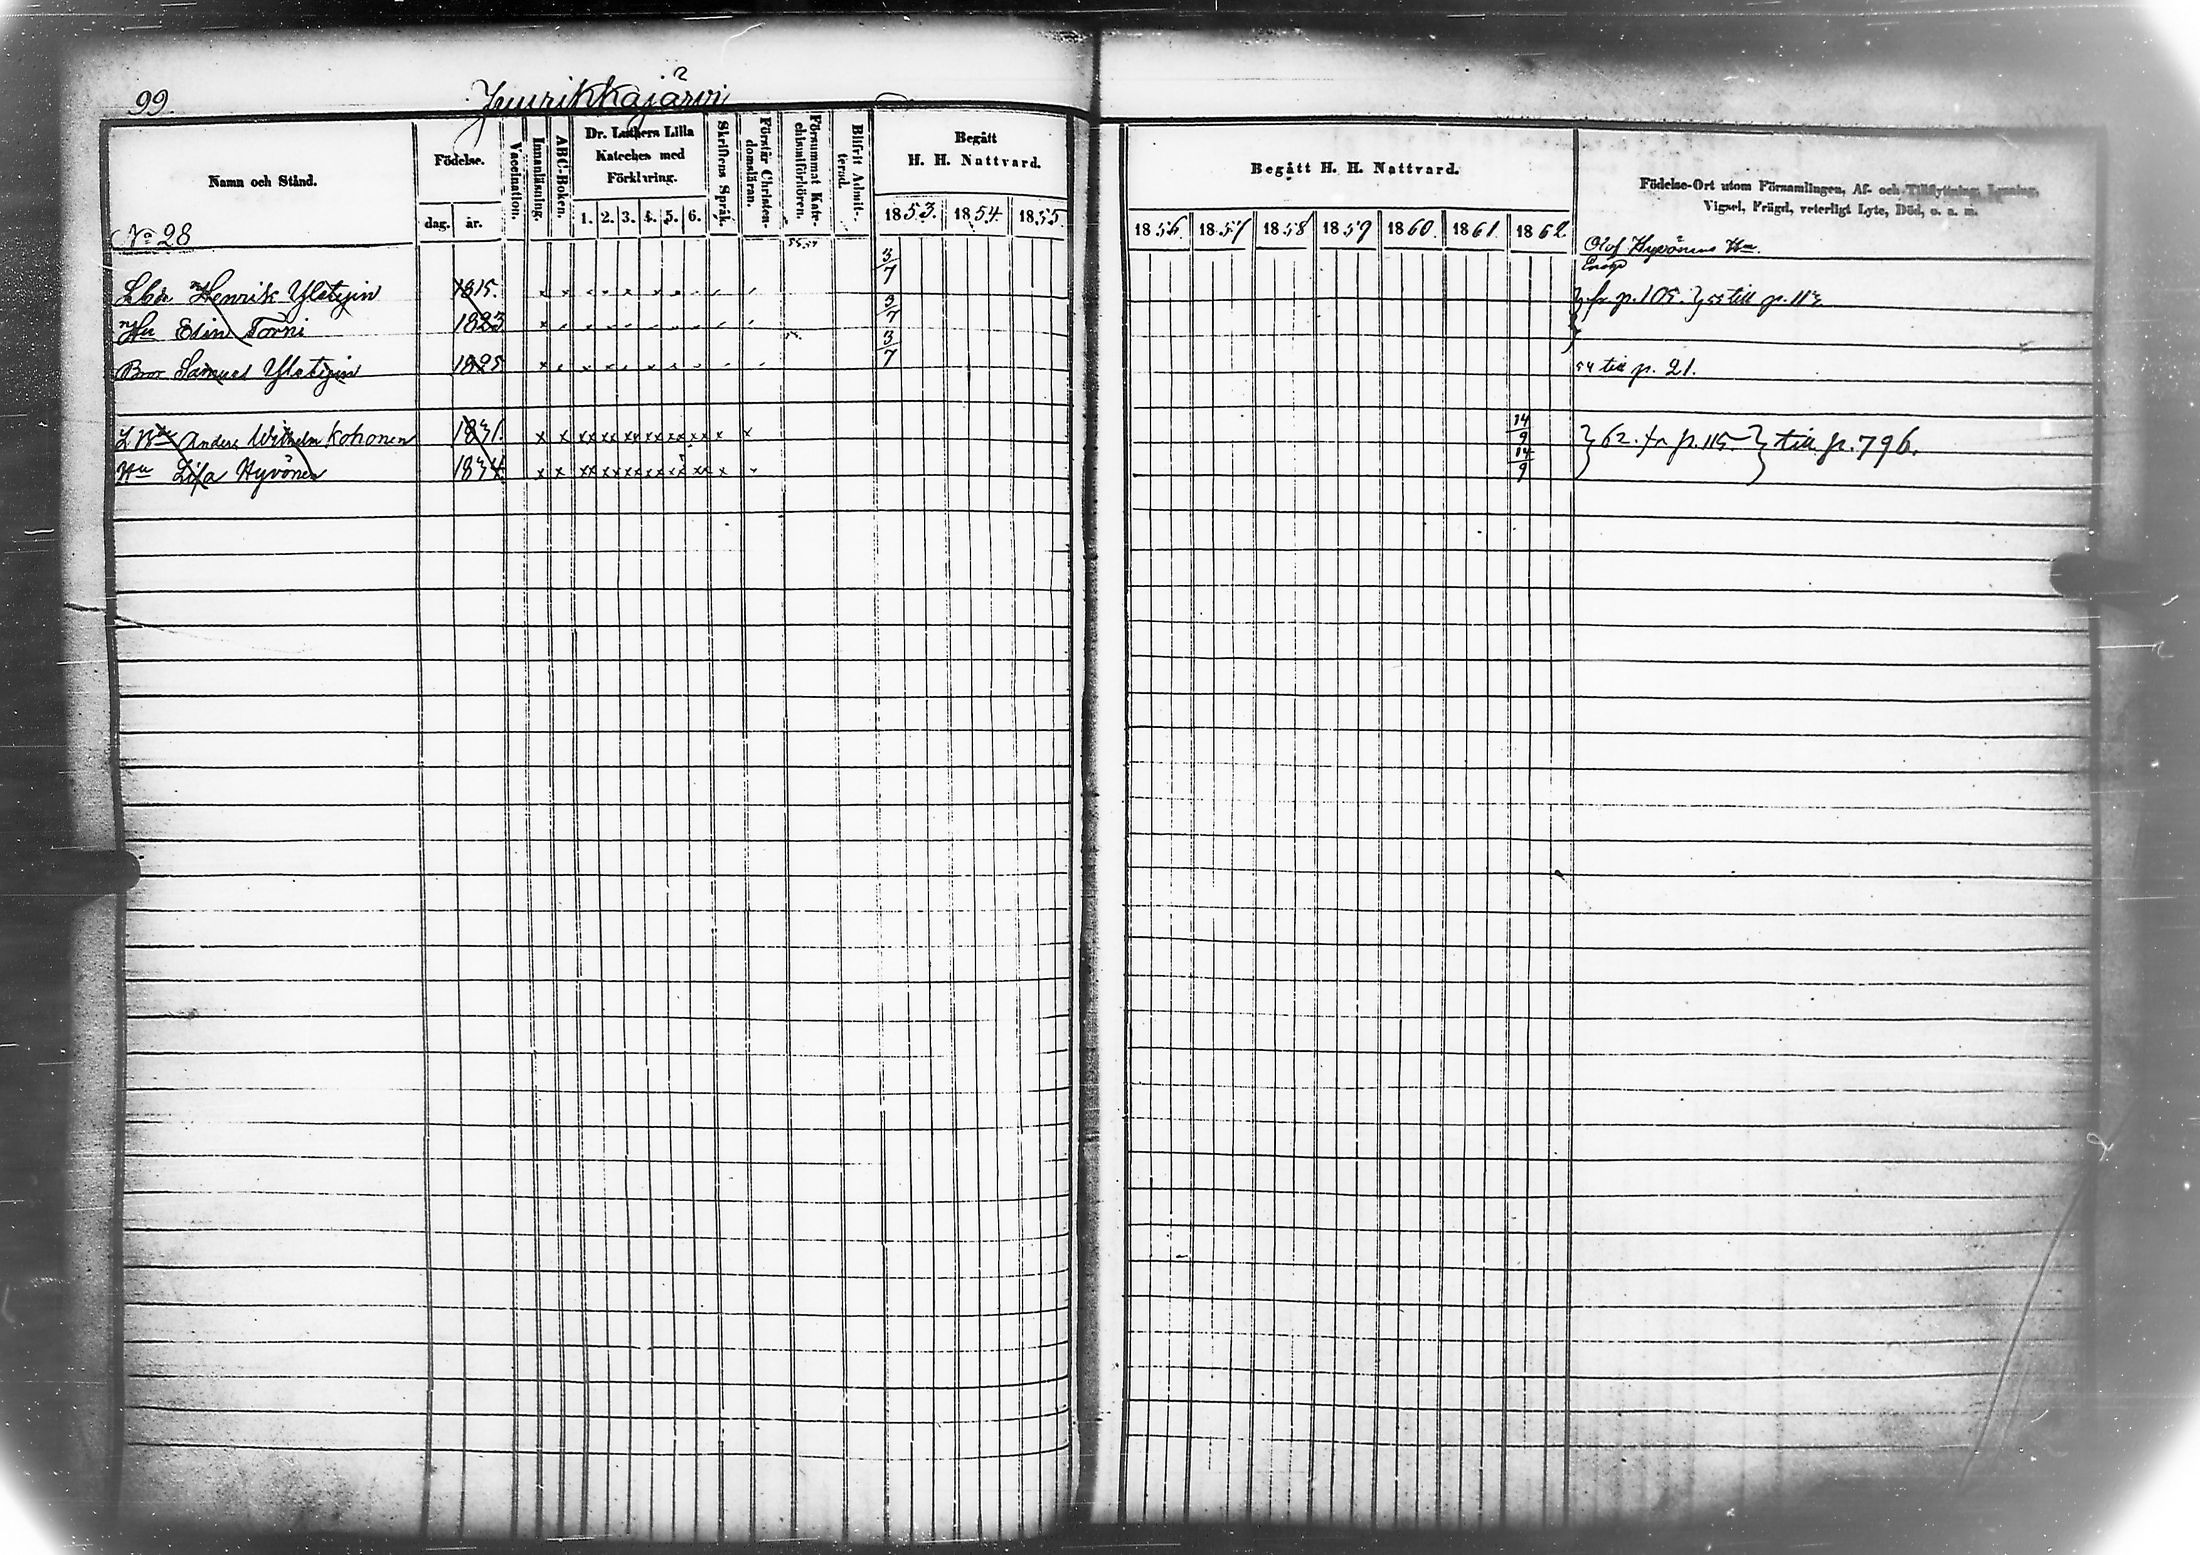 99.
Juurikkajärvi
Namn och Stånd.
Födelse.
dag. år.
Vaccination.
Innanläsning.
ABC-Boken.
Dr. Luthers Lilla
Kateches med
Förklaring.
1. 2. 3. 4. 5. 6.
Skriftens Språk.
Förstår Christen-
domsläran.
Försummat Kate-
chismiförhören.
Blifvit Admit-
terad.
Begått
H. H. Nattvard.
1853. 1854. 1855
Begått H. H. Nattvard.
1856. 1857 1858 1859 1860. 1861. 1862.
Födelse-Ort utom Församlingen, Af- och Tillflyttning, Lysning,
Vigsel, Frägd, veterligt Lyte, Död, o. s. m.
No 28
Olof Hyvönens
Henrik 1815. x x 3/7 fr p. 105. 55 till p.
Hu Elin Torni 1823 3/7
Bror Samuel 1825 3/7 54 till p. 21.
Anders Wilhelm Kohonen 1831. x x xx xx xx xx xx xx x x 14/9 62. fr p. 115. till p. 796.
Hu Lisa Hyvönen 1834 x x xx xx xx xx xx xx x 14/9